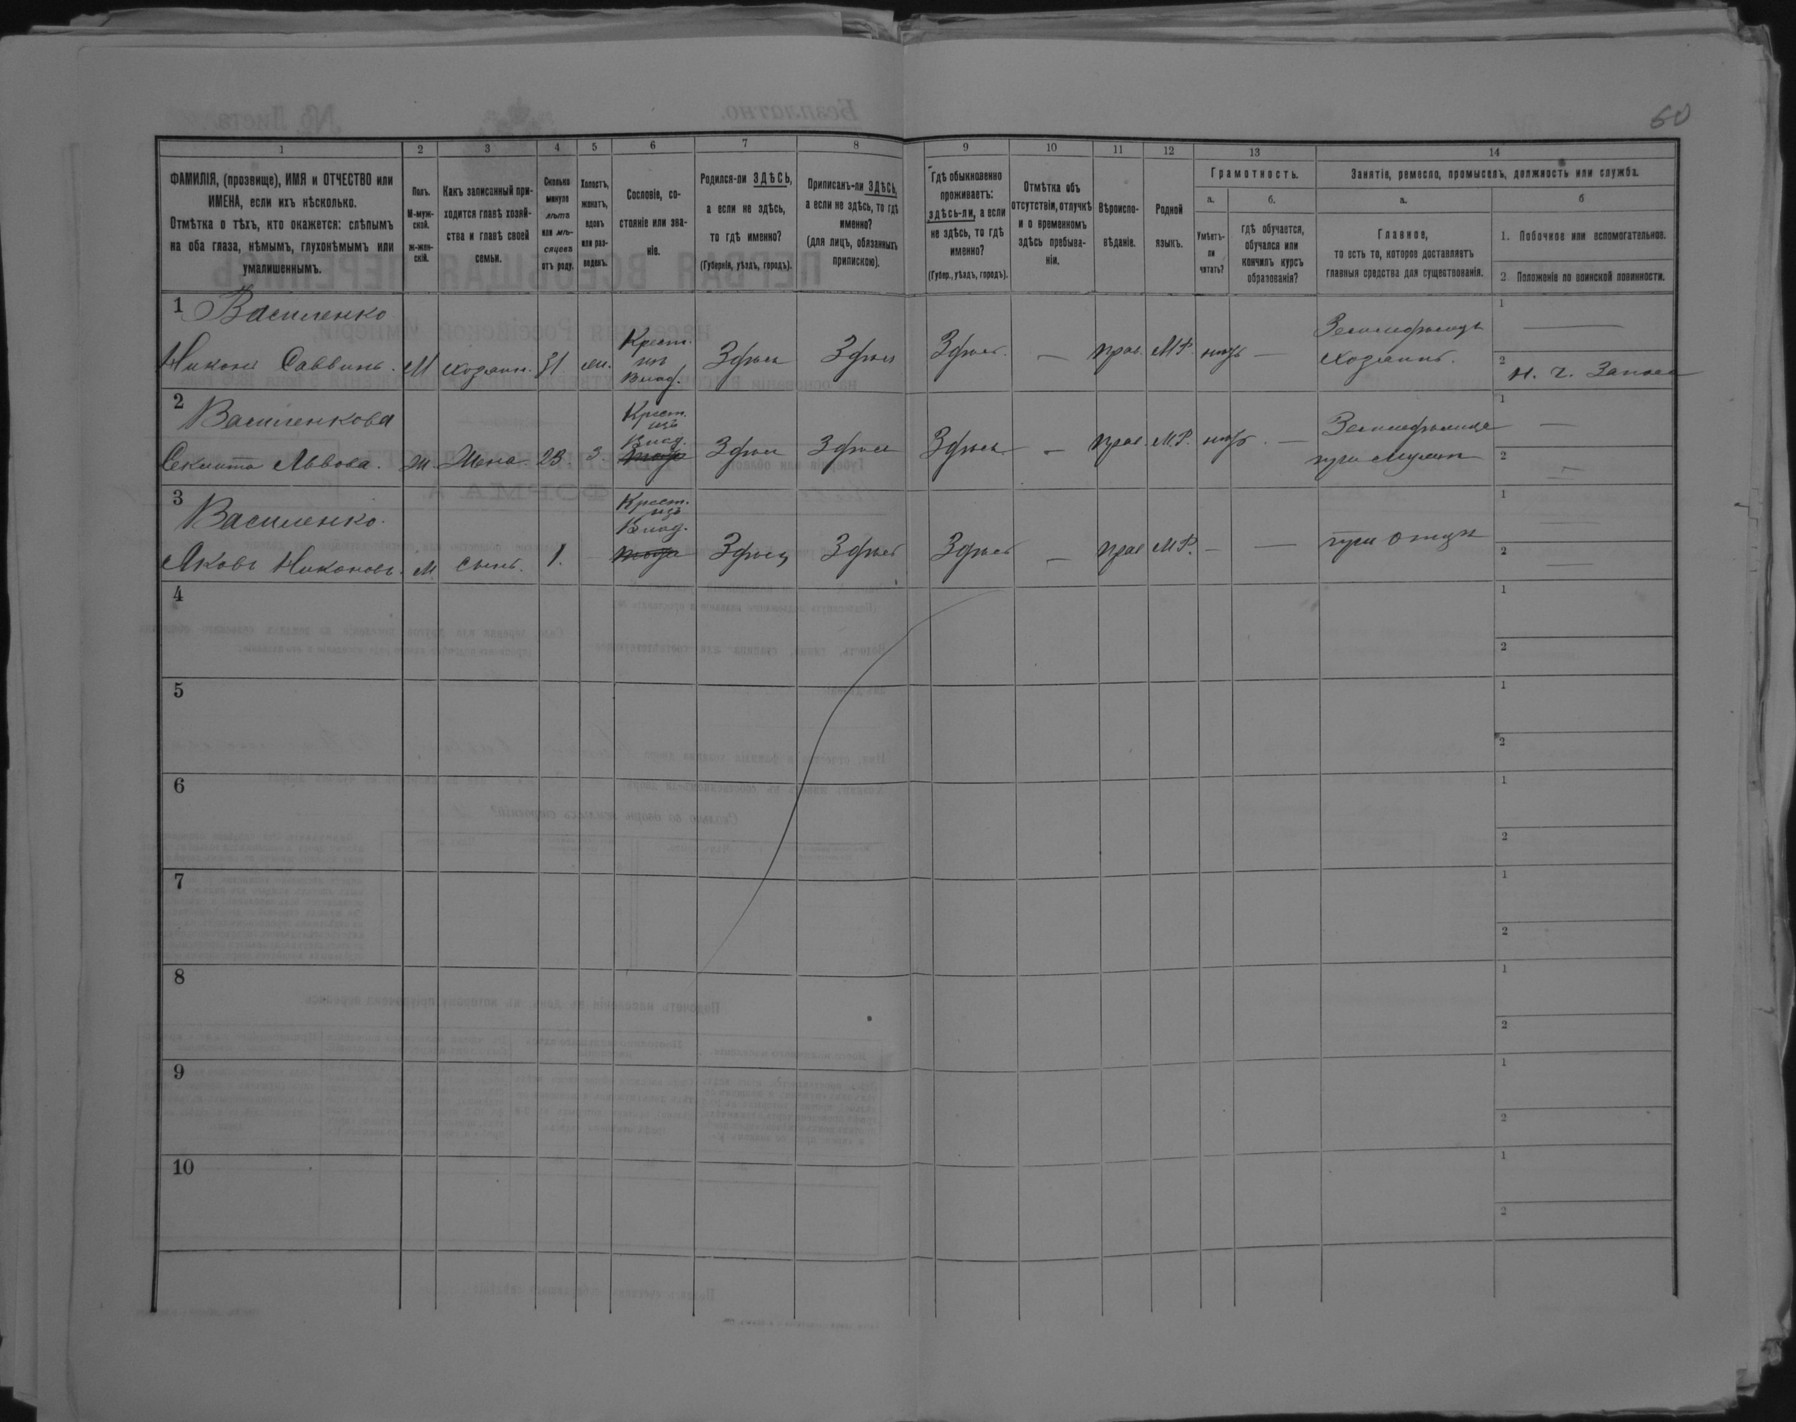 60
1
2
3
4
5
6
7
8
9
10
11
12
13
14
ФАМИЛІЯ, (прозвище), ИМЯ и ОТЧЕСТВО или
ИМЕНА, если ихъ нѣсколько.
Отмѣтка о тѣхъ, кто окажется: слѣпымъ
на оба глаза, нѣмымъ, глухонѣмымъ или
умалишеннымъ.
Полъ.
М-муж-
ской.
ж-жен-
скій.
Какъ записанный при-
ходится главѣ хозяй-
ства и главѣ своей
семьи.
Сколько
минуло
лѣтъ
или мѣ-
сяцевъ
отъ роду.
Холостъ,
женатъ,
вдовъ
или раз-
веденъ.
Сословіе, со-
стояніе или зва-
ніе.
Родился-ли ЗДѢСЬ,
а если не здѣсь,
то гдѣ именно?
(Губернія, уѣздъ, городъ).
Приписанъ-ли ЗДѢСЬ,
а если не здѣсь, то гдѣ
именно?
(для лицъ, обязанныхъ
припискою).
Гдѣ обыкновенно
проживаетъ:
здѣсь-ли, а если
не здѣсь, то гдѣ
именно?
(Губер., уѣздъ, городъ).
Отмѣтка объ
отсутствіи, отлучкѣ
и о временномъ
здѣсь пребыва-
ніи.
Вѣроиспо-
вѣданіе.
Родной
языкъ.
Грамотность.
а.
Умѣетъ-
ли
читать?
б.
гдѣ обучается,
обучался или
кончилъ курсъ
образованія?
Занятіе, ремесло, промыселъ, должность или служба.
а.
Главное,
то есть то, которое доставляетъ
главныя средства для существованія.
б
1. Побочное или вспомогательное.
2. Положеніе по воинской повинности.
1 Василенко
Никонъ Саввинъ. М хозяин. 31 жен. Крест. изъ Влад. Здѣсь Здѣсь Здѣсь. — прав. М.Р. нѣтъ —
Земледѣлецъ
хозяинъ.
1 —
2 н. ч. Запаса
2 Василенкова
Львова. Ж Жена. 23. з. Крест. изъ Влад. Здѣсь Здѣсь Здѣсь — прав М.Р. нѣтъ. —
при мужѣ
1 —
2 —
3 Василенко.
Яковъ Никоновъ. М. сынъ. 1. — Крест. изъ Влад. Здѣсь Здѣсь Здѣсь — прав М.Р. — —
при отцѣ
1 —
2 —
4
1
2
5
1
2
6
1
2
7
1
2
8
1
2
9
1
2
10
1
2